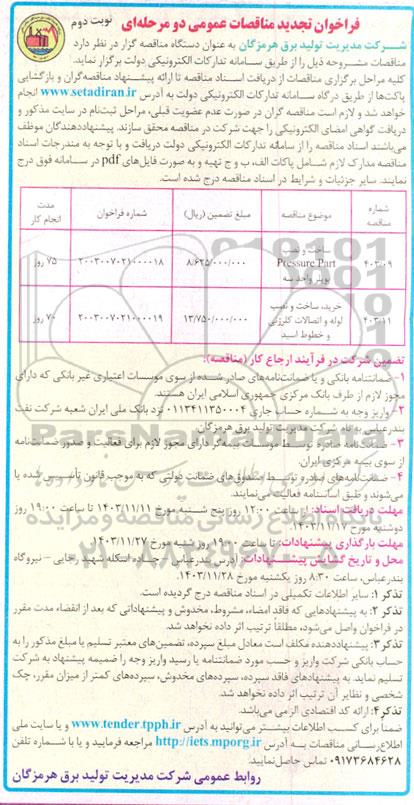 فراخوان تجدید مناقصات عمومی دو مرحله‌ای
نوبت دوم
شرکت مدیریت تولید برق هرمزگان به عنوان دستگاه مناقصه گزار در نظر دارد
مناقصات مشروحه ذیل را از طریق سامانه تدارکات الکترونیکی دولت برگزار نماید.
کلیه مراحل برگزاری مناقصات از دریافت اسناد مناقصه تا ارائه پیشنهاد مناقصه‌گران و بازگشایی
پاکت‌ها از طریق درگاه سامانه تدارکات الکترونیکی دولت به آدرس www.setadiran.ir انجام
خواهد شد و لازم است مناقصه گران در صورت عدم عضویت قبلی، مراحل ثبت‌نام در سایت مذکور و
دریافت گواهی امضای الکترونیکی را جهت شرکت در مناقصه محقق سازند. پیشنهاددهندگان موظف
می‌باشند اسناد مناقصه را از سامانه تدارکات الکترونیکی دولت دریافت و با توجه به مندرجات اسناد
مناقصه مدارک لازم شامل پاکات الف، ب و ج تهیه و به صورت فایل‌های pdf در سامانه فوق درج
نمایند. سایر جزئیات و شرایط در اسناد مناقصه درج شده است.
شماره مناقصه | موضوع مناقصه | مبلغ تضمین (ریال) | شماره فراخوان | مدت انجام کار
۴۰۳/۰۹ | ساخت و نصب Pressure Part بویلر واحد سه | ۸/۶۲۵/۰۰۰/۰۰۰ | ۲۰۰۳۰۰۷۰۲۱۰۰۰۰۱۸ | ۷۵ روز
۴۰۳/۱۱ | خرید، ساخت و نصب لوله و اتصالات کلرزنی و خطوط اسید | ۱۳/۷۵۰/۰۰۰/۰۰۰ | ۲۰۰۳۰۰۷۰۲۱۰۰۰۰۱۹ | ۷۰ روز
تضمین شرکت در فرآیند ارجاع کار (مناقصه):
۱- ضمانتنامه بانکی و یا ضمانت‌نامه‌های صادر شده از سوی موسسات اعتباری غیر بانکی که دارای
مجوز لازم از طرف بانک مرکزی جمهوری اسلامی ایران هستند.
۲- واریز وجه به شماره حساب جاری ۰۱۱۳۴۱۱۳۵۰۰۰۴ نزد بانک ملی ایران شعبه شرکت نفت
بندرعباس به نام شرکت مدیریت تولید برق هرمزگان.
۳- ضمانت‌نامه صادره توسط موسسات بیمه‌گر دارای مجوز لازم برای فعالیت و صدور ضمانت‌نامه
از سوی بیمه مرکزی ایران.
۴- ضمانت‌نامه‌های صادره توسط صندوق‌های ضمانت دولتی که به موجب قانون تأسیس شده یا
می‌شوند و طبق اساسنامه فعالیت می‌نمایند.
مهلت دریافت اسناد: از ساعت ۱۲:۰۰ روز پنج شنبه مورخ ۱۴۰۳/۱۱/۱۱ تا ساعت ۱۹:۰۰ روز
دوشنبه مورخ ۱۴۰۳/۱۱/۱۷
مهلت بارگذاری پیشنهادات: تا ساعت ۱۹:۰۰ روز شنبه مورخ ۱۴۰۳/۱۱/۲۷
محل و تاریخ گشایش پیشنهادات: آدرس بندرعباس – جاده اسکله شهید رجایی – نیروگاه
بندرعباس، ساعت ۸:۳۰ روز یکشنبه مورخ ۱۴۰۳/۱۱/۲۸
تذکر ۱: سایر اطلاعات تکمیلی در اسناد مناقصه درج گردیده است.
تذکر ۲: به پیشنهادهایی که فاقد امضاء، مشروط، مخدوش و پیشنهاداتی که بعد از انقضاء مدت مقرر
در فراخوان واصل می‌شود، مطلقاً ترتیب اثر داده نخواهد شد.
تذکر ۳: پیشنهاددهنده مکلف است معادل مبلغ سپرده، تضمین‌های معتبر تسلیم یا مبلغ مذکور را به
حساب بانکی شرکت واریز و حسب مورد ضمانتنامه یا رسید واریز وجه را ضمیمه پیشنهاد به شرکت
تسلیم نماید. به پیشنهادهای فاقد سپرده، سپرده‌های مخدوش، سپرده‌های کمتر از میزان مقرر، چک
شخصی و نظایر آن ترتیب اثر داده نخواهد شد.
تذکر ۴: ارائه کد اقتصادی الزامی می‌باشد.
ضمناً برای کسب اطلاعات بیشتر می‌توانید به آدرس www.tender.tpph.ir و یا سایت ملی
اطلاع‌رسانی مناقصات به آدرس http://iets.mporg.ir مراجعه فرمایید و یا با شماره تلفن
۰۹۱۷۳۶۸۴۶۲۸ تماس حاصل نمایید.
روابط عمومی شرکت مدیریت تولید برق هرمزگان